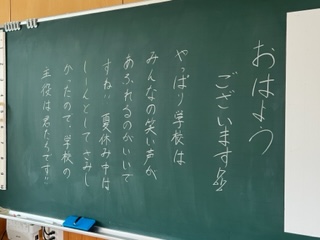 おはよう
ございます!!
やっぱり学校は
みんなの笑い声が
あふれるのがいいで
すね。夏休み中は
しーんとしてさみし
かったので、学校の
主役は君たちです!!